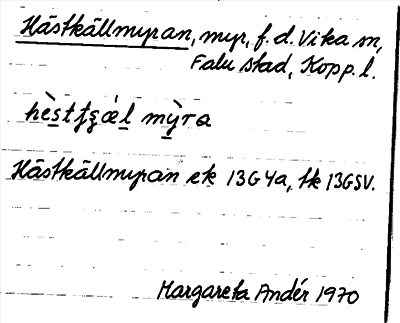 Hästkällmyran, myr, f.d. Vika sn,
Falu stad, Kopp.l.
hὲstʃʒæ̀l mỳra
Hästkällmyran ek 13G4a, tk 13GSV.
Margareta Andér 1970